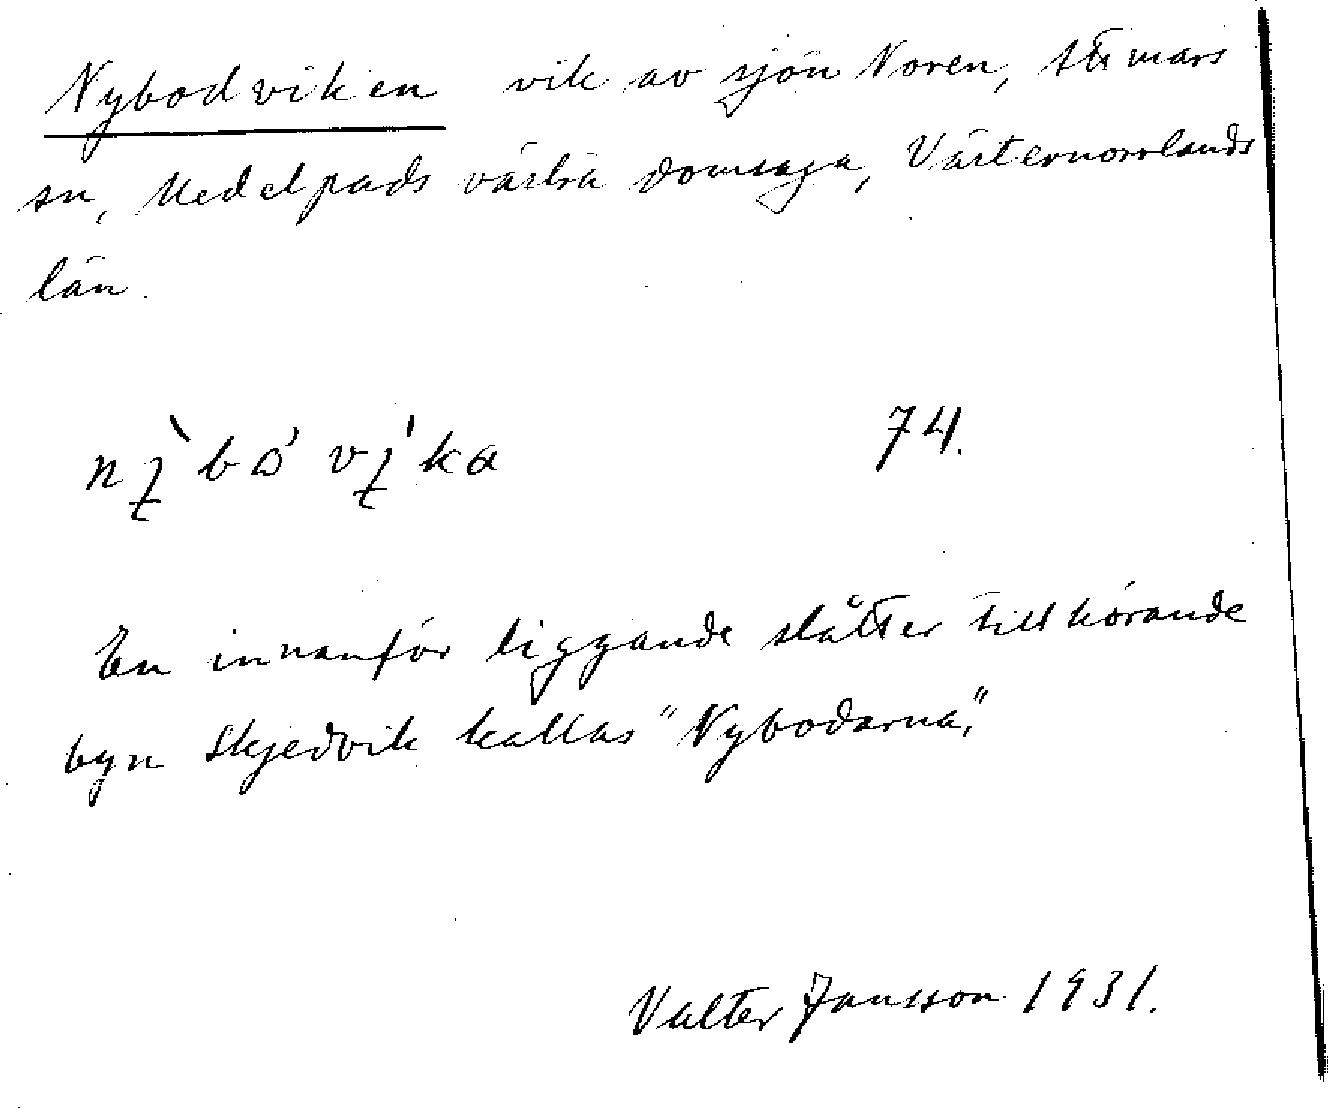 Nybodviken vik av sjön Noren, Attmars
sn, Medelpads västra domsaga, Västernorrlands
län.
74.
En innanför liggande slåtter tillhörande
byn Skjedvik kallas "Nybodarna".
Valter Jansson 1931.